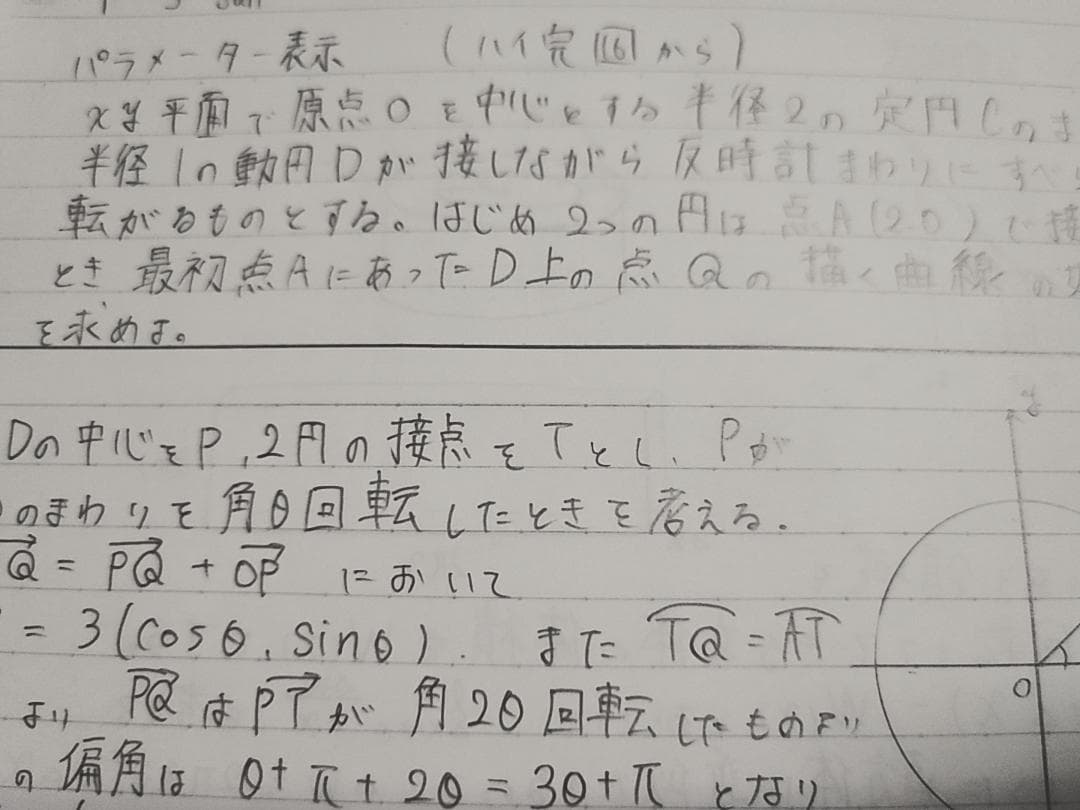 パラメーター表示 (ハイ完 16 から)
xy平面で原点Oを中心とする半径2の定円Cのま
半径1の動円Dが接しながら反時計まわりにすべ
転がるものとする。はじめ2つの円は点A(2.0)で接
とき最初点AにあったD上の点Qの描く曲線の
を求めよ。
y
Dの中心をP,2円の接点をTとし、Pが
のまわりを角θ回転したときを考える.
Q = PQ + OP において
= 3(cosθ, sinθ). また TQ = AT
O
より PQはPTが角2θ回転したものより
の偏角は θ+π+2θ=3θ+πとなり